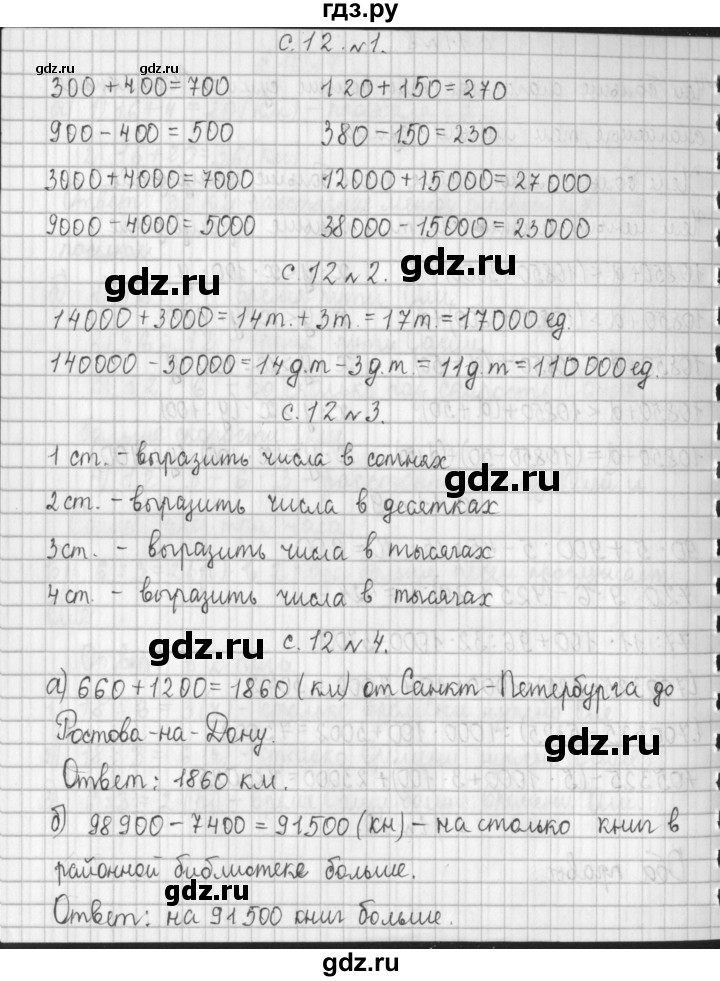 гдз.ру
с. 12 №1.
gdz.ru gdz.ru
300 + 400 = 700 120 + 150 = 270
900 - 400 = 500 380 - 150 = 230
3000 + 4000 = 7000 12000 + 15000 = 27000
9000 - 4000 = 5000 38000 - 15000 = 23000
с. 12 №2.
gdz.ru gdz.ru
14000 + 3000 = 14т. + 3т. = 17т. = 17000 ед.
140000 - 30000 = 14д.т - 3д.т. = 11д.т = 110000 ед.
с. 12 №3.
1 ст. - выразить числа в сотнях
gdz.ru
2 ст. - выразить числа в десятках
3 ст. - выразить числа в тысячах
4 ст. - выразить числа в тысячах
gdz.ru
с. 12 №4.
а) 660 + 1200 = 1860 (км) от Санкт-Петербурга до
Ростова-на-Дону.
gdz.ru
Ответ: 1860 км.
б) 98900 - 7400 = 91500 (кн) - на столько книг в
районной библиотеке больше.
gdz.ru
Ответ: на 91500 книг больше.
gdz.ru